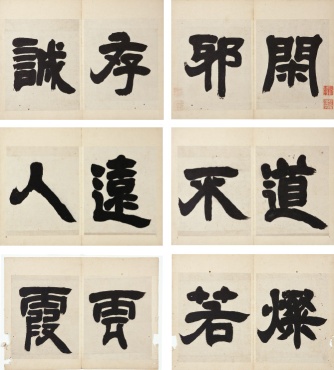 閑邪存誠
道不遠人
燦若雲霞